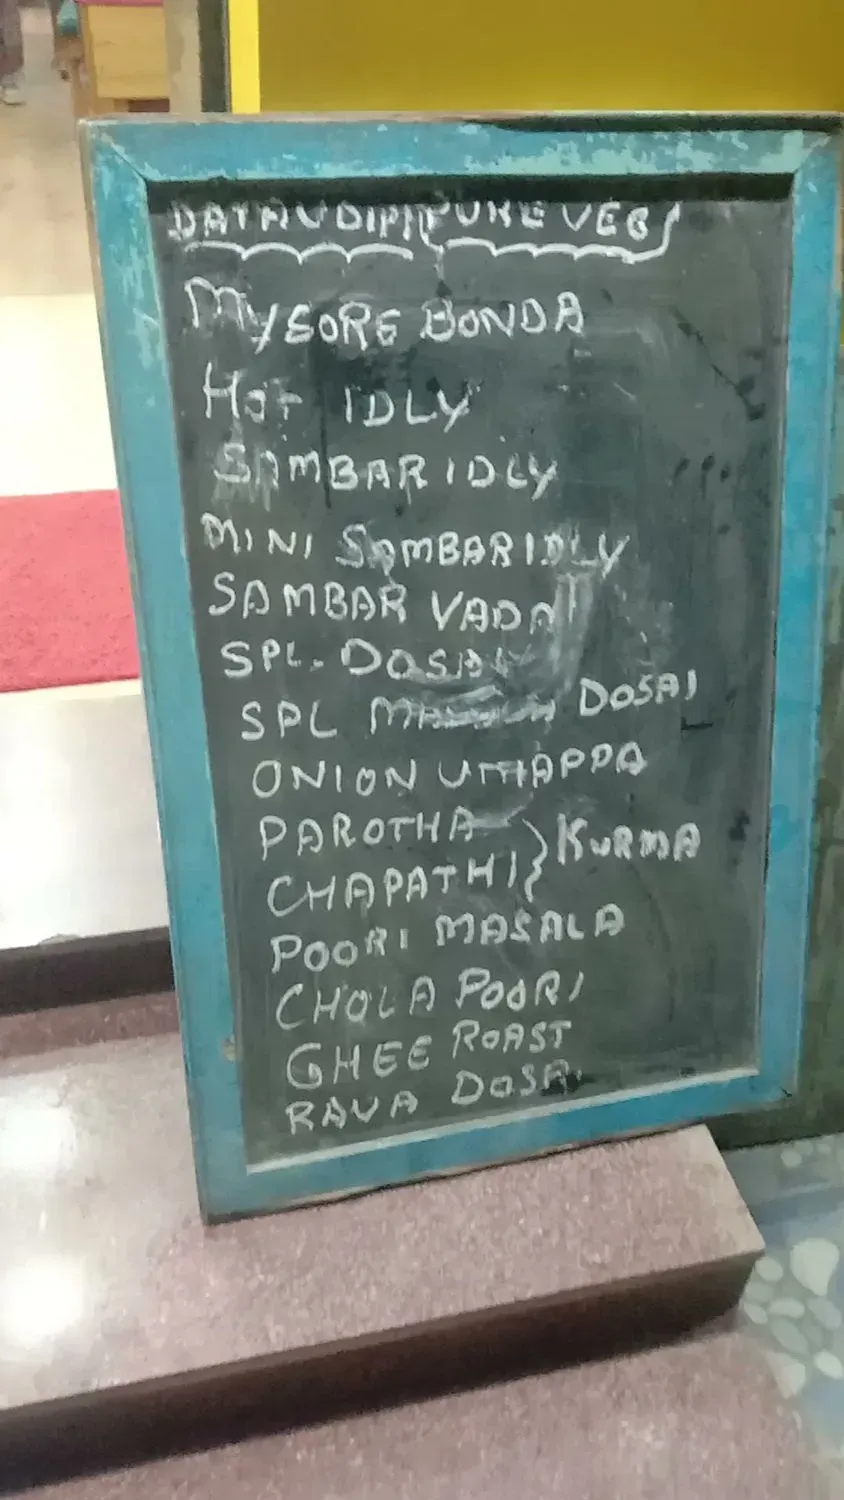 DATA UDIPI PURE VEG
MYSORE BONDA
HOT IDLY
SAMBAR IDLY
MINI SAMBAR IDLY
SAMBAR VADAI
SPL. DOSAI
SPL MASALA DOSAI
ONION UTHAPPA
PAROTHA
CHAPATHI } KURMA
POORI MASALA
CHOLA POORI
GHEE ROAST
RAVA DOSAI